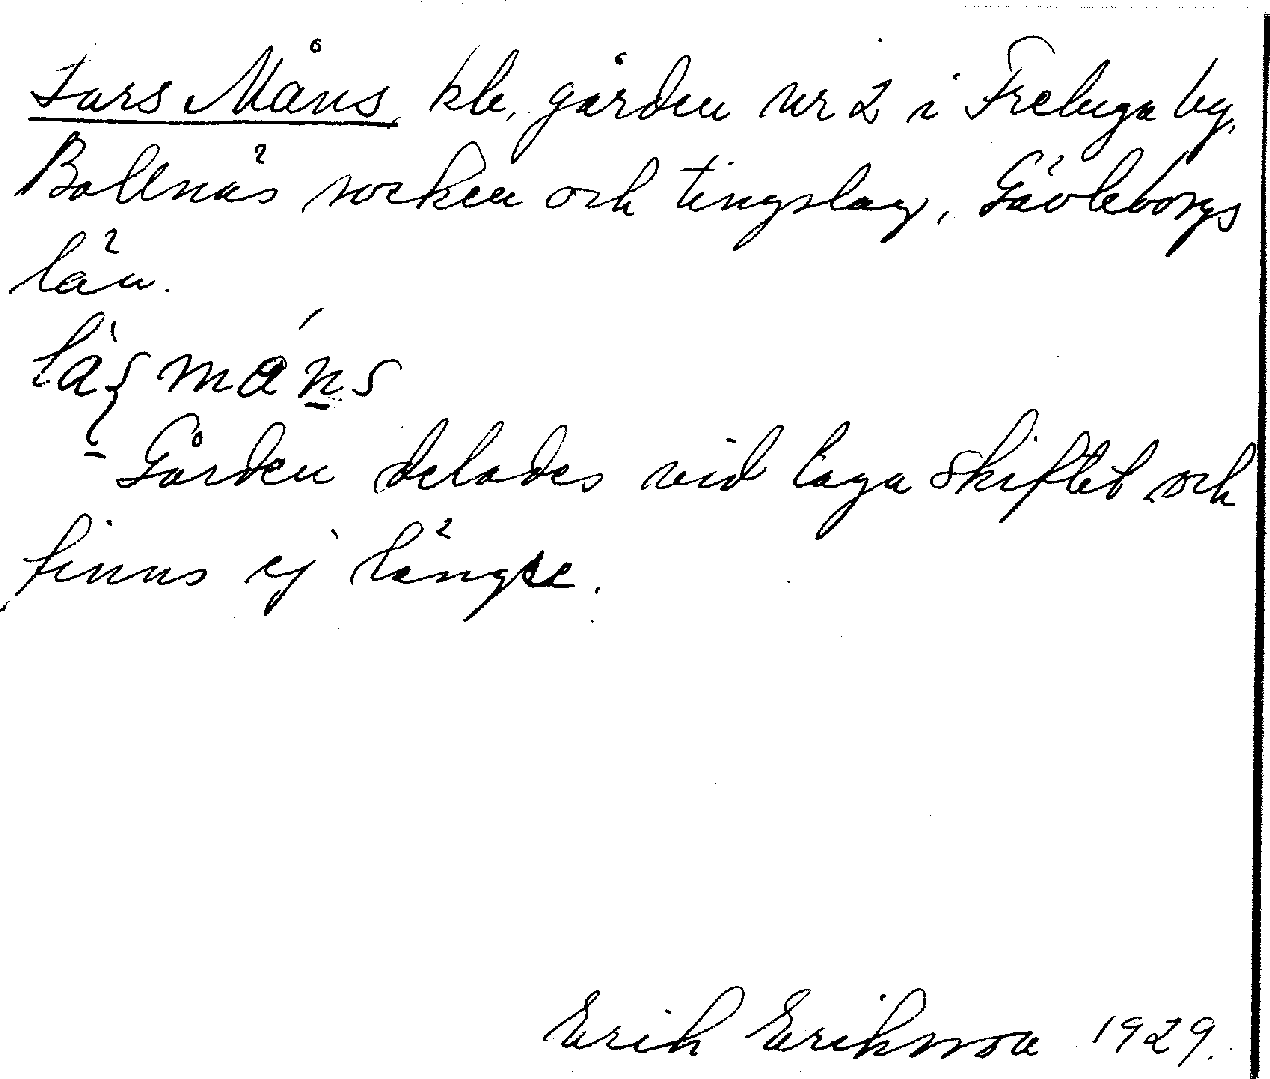 Lars Måns, kle, gården nr 2 i Freluga by,
Bollnäs socken och tingslag, Gävleborgs
län.
Gården delades vid laga skiftet och
finns ej längre.
Erik Eriksson 1929.